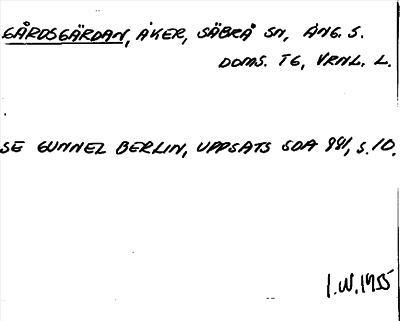 GÅRDSGÄRDAN, ÅKER, SÄBRÅ SN, ÅNG. S.
DOMS. TG, VRNL. L.
SE GUNNEL BERLIN, UPPSATS SOA 991, S. 10.
I.W. 1955